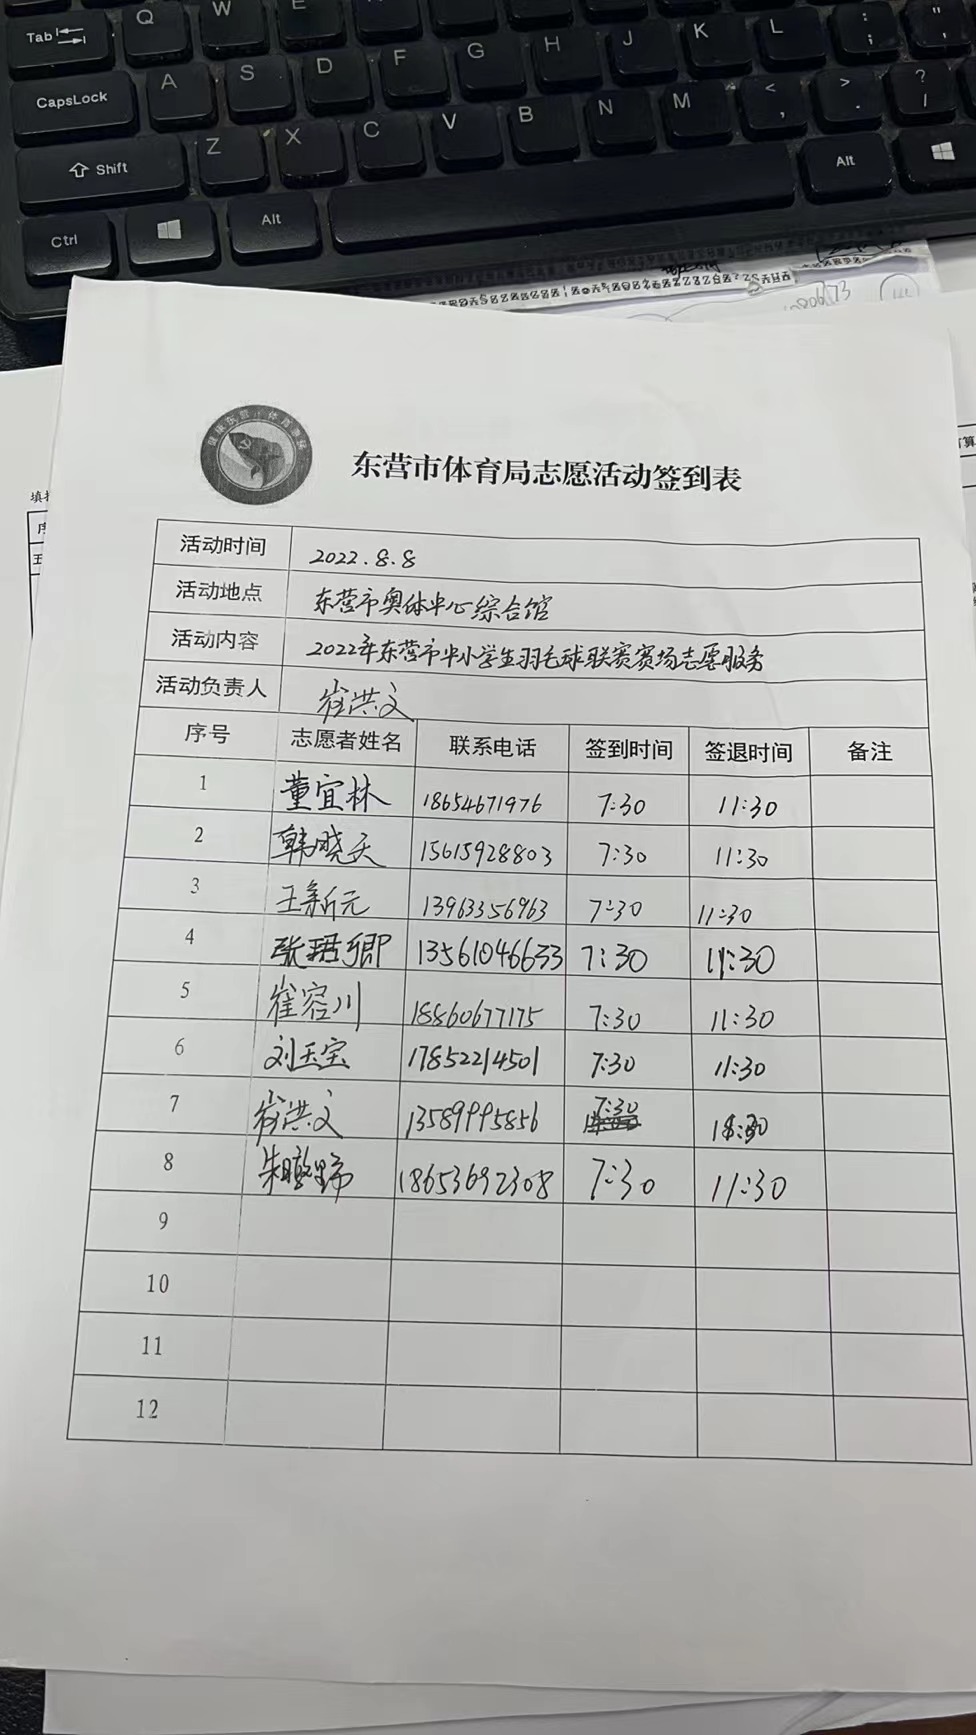 Tab
Q
W
E
CapsLock
A
S
D
F
G
H
J
K
L
:
;
"
'
Shift
Z
X
C
V
B
N
M
<
,
>
.
?
/
Ctrl
Alt
Alt
东营市体育局志愿活动签到表
活动时间 2022.8.8
活动地点 东营市奥体中心综合馆
活动内容 2022年东营市中小学生羽毛球联赛赛场志愿服务
活动负责人 崔洪文
序号 志愿者姓名 联系电话 签到时间 签退时间 备注
1 董宜林 18654671976 7:30 11:30
2 韩晓天 15615928803 7:30 11:30
3 王新元 13963356963 7:30 11:30
4 张珺卿 13561046633 7:30 11:30
5 崔容川 18860677175 7:30 11:30
6 刘玉宝 17852214501 7:30 11:30
7 崔洪文 13589995856 7:30
8 朱 18653692308 7:30 11:30
9
10
11
12